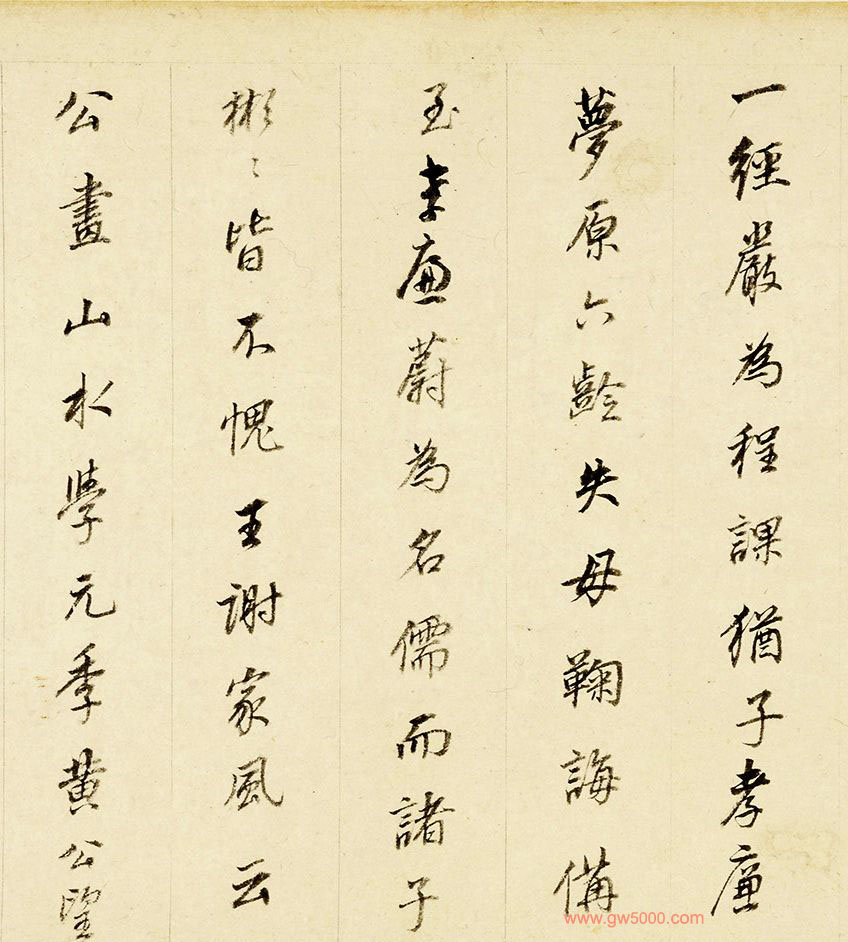 一經嚴為程課猶子孝廉
夢原六齡失母鞠誨備
至孝廉蔚為名儒而諸子
彬〻皆不愧王謝家風云
公畫山水學元季黃公望
www.gw5000.com